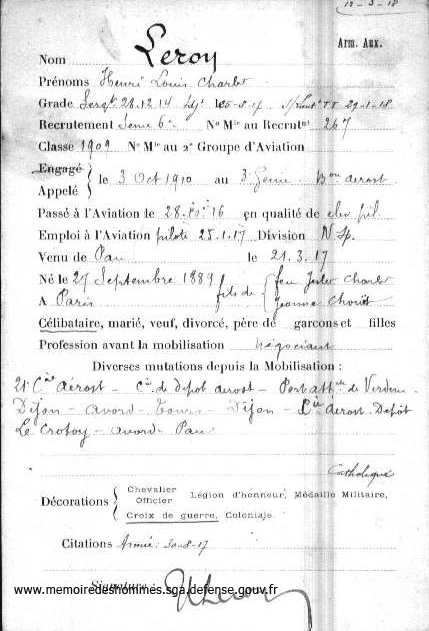 12-3-18
Arm. Aux.
Nom Leroy
Prénoms Henri Louis Charles
Grade Sergt 28.12.14 Adjt 26-8-17 S/Lieut TT 29-1-18
Recrutement Seine 6e No Mle au Recrutnt 267
Classe 1909 No Mle au 2e Groupe d'Aviation
Engagé
Appelé le 3 Oct 1910 au 3 Génie Bon aérost
Passé à l'Aviation le 28 16 en qualité de élev pil.
Emploi à l'Aviation pilote 25.1.17 Division N. Sp.
Venu de Pau le 21.3.17
Né le 27 Septembre 1889 fils de feu Charles
A Paris Jeanne
Célibataire, marié, veuf, divorcé, père de garçons et filles
Profession avant la mobilisation négociant
Diverses mutations depuis la Mobilisation :
21e Cie Aérost – Cie de dépôt aérost – Port att de Verdun
Dijon – Avord – Tours – Dijon – Cie aérost. Dépôt
Le Crotoy – avord – Pau
Catholique
Décorations Chevalier Officier Légion d'honneur, Médaille Militaire,
Croix de guerre, Coloniale.
Citations Armée : 30-8-17
Signature : Leroy
www.memoiredeshommes.sga.defense.gouv.fr